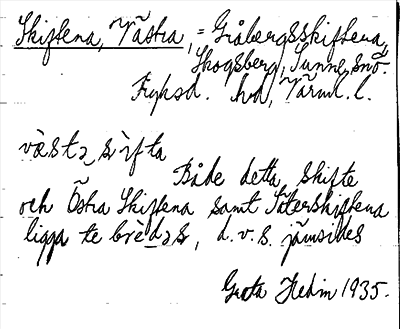 Skiftena, Västra, = Gråbergsskiftena,
Skogsberg, Sunne snö.
Fryksd. hd, Värml. l.
vàstɔ sìfta
Både detta skifte
och Östra Skiftena samt Säterskiftena
ligga te brèdɔs, d.v.s. jämsides
Greta Hedin 1935.